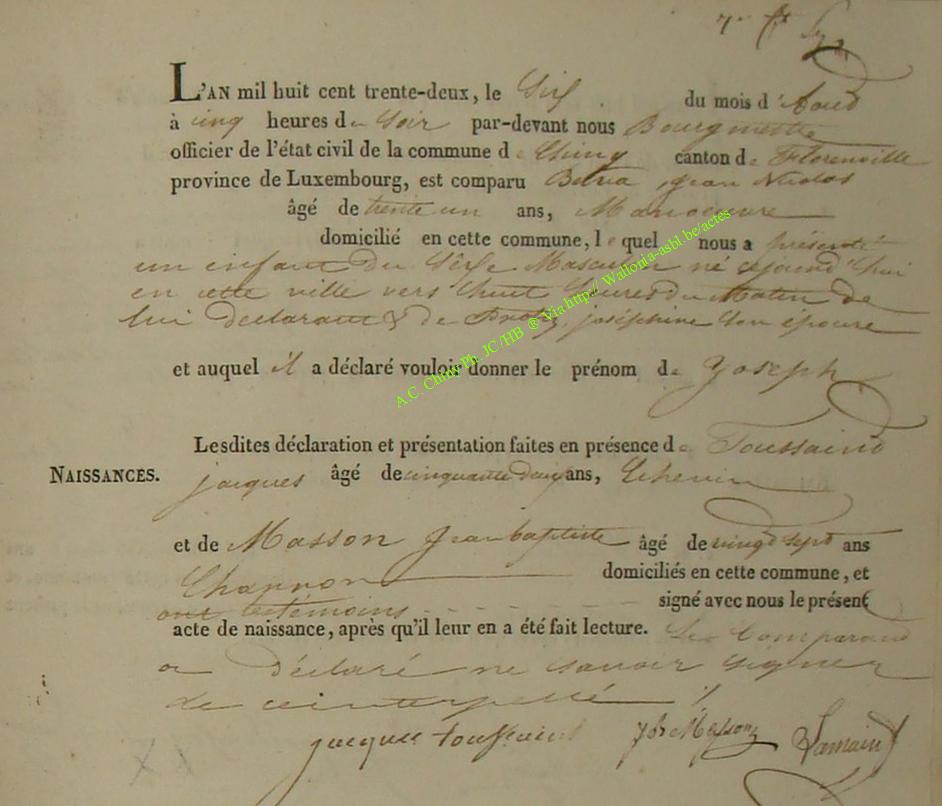 L'AN mil huit cent trente-deux, le Six du mois d'Aoud
à cinq heures du Soir par-devant nous Bourgmestre
officier de l'état civil de la commune de Chiny canton de Florenville
province de Luxembourg, est comparu Jean Nicolas
âgé de trente un ans, Manoeuvre
domicilié en cette commune, lequel nous a présenté
un enfant du Sexe Masculin né cejourd'hui
en cette ville vers huit heures du Matin de
lui déclarant & de joséphine son épouse
et auquel il a déclaré vouloir donner le prénom de Joseph
Lesdites déclaration et présentation faites en présence de Toussaind
NAISSANCES. jacques âgé de cinquante deux ans, Echevin
et de Masson Jean baptiste âgé de vingd sept ans
Charron domiciliés en cette commune, et
ont les témoins signé avec nous le présent
acte de naissance, après qu'il leur en a été fait lecture. Le Comparand
a déclaré ne savoir signer
de ce interpellé
jacque toussaint Masson
A.C. Chiny-Ph. JC/HB ® Via http://Wallonia-asbl.be/actes